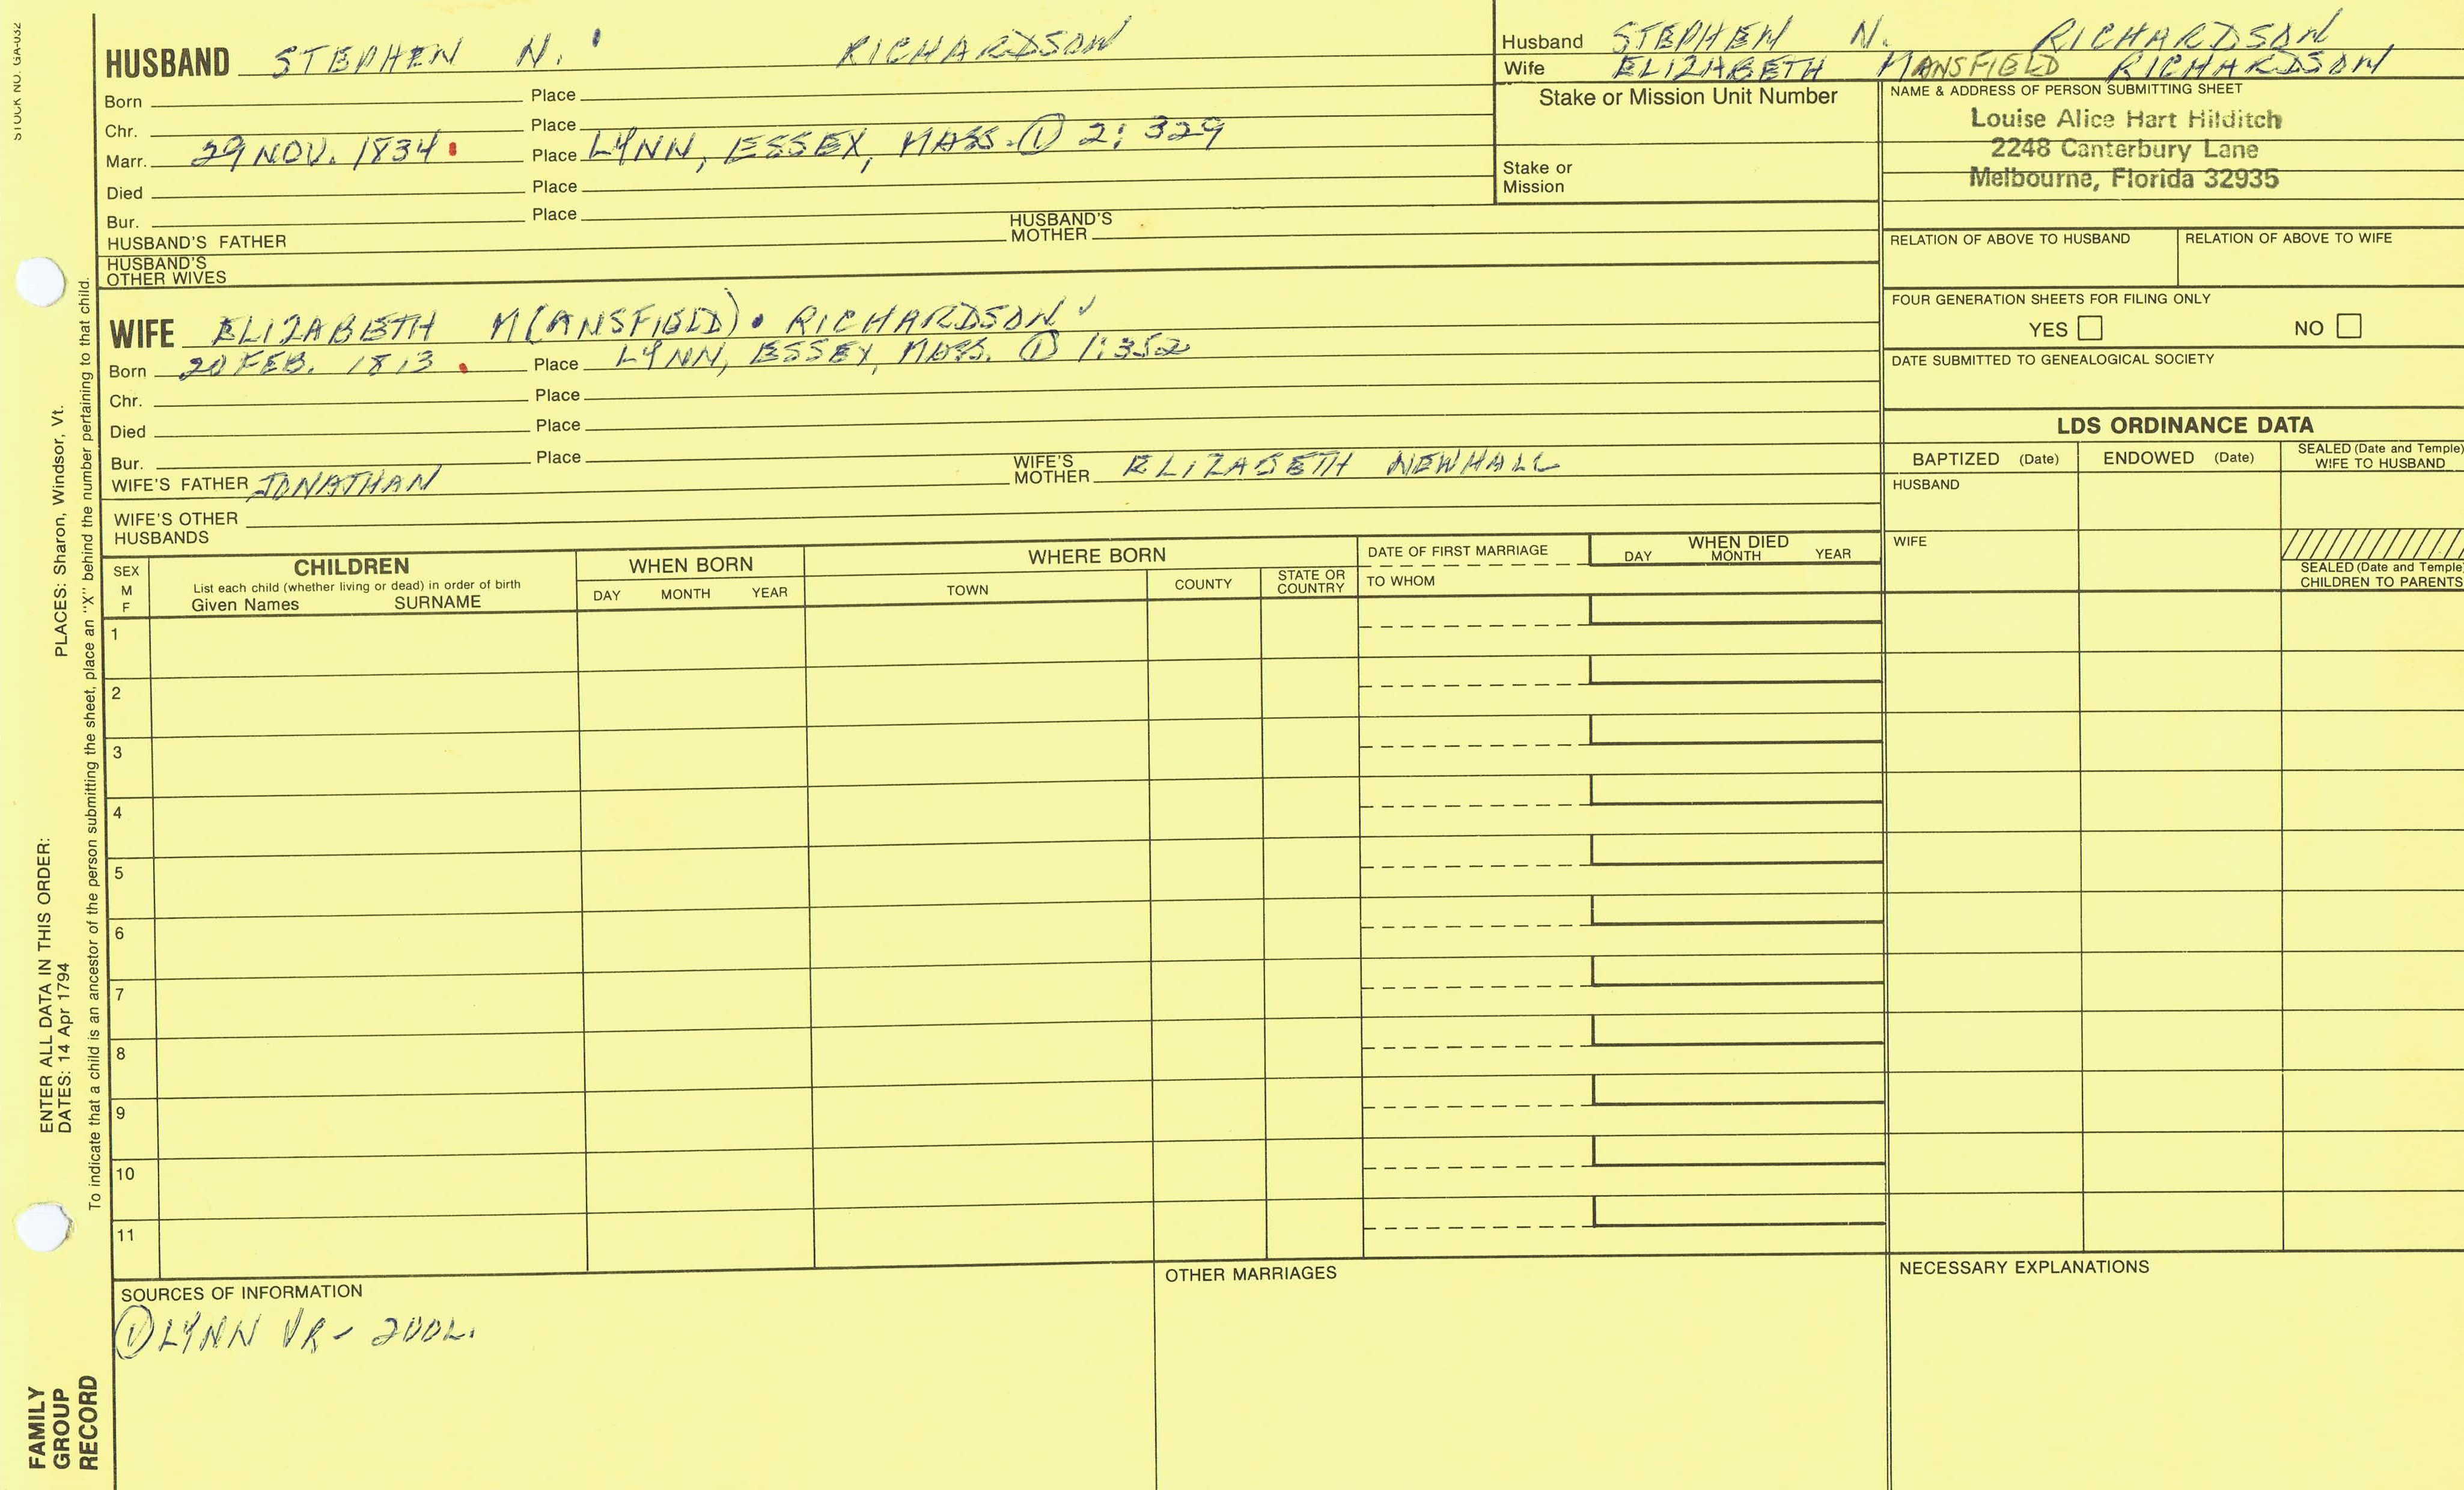 STOCK NO. GA-032
HUSBAND STEPHEN N. RICHARDSON
Born Place
Chr. Place
Marr. 29 NOV. 1834 Place LYNN, ESSEX, MASS. ① 2: 329
Died Place
Bur. Place
HUSBAND'S FATHER HUSBAND'S MOTHER
HUSBAND'S OTHER WIVES
WIFE ELIZABETH M(ANSFIELD). RICHARDSON ✓
Born 20 FEB. 1813 Place LYNN, ESSEX, MASS. ① 1:352
Chr. Place
Died Place
Bur. Place
WIFE'S FATHER JONATHAN WIFE'S MOTHER ELIZABETH NEWHALL
WIFE'S OTHER HUSBANDS
Husband STEPHEN N. RICHARDSON
Wife ELIZABETH MANSFIELD RICHARDSON
Stake or Mission Unit Number
Stake or Mission
NAME & ADDRESS OF PERSON SUBMITTING SHEET
Louise Alice Hart Hilditch
2248 Canterbury Lane
Melbourne, Florida 32935
RELATION OF ABOVE TO HUSBAND RELATION OF ABOVE TO WIFE
FOUR GENERATION SHEETS FOR FILING ONLY
YES NO
DATE SUBMITTED TO GENEALOGICAL SOCIETY
LDS ORDINANCE DATA
BAPTIZED (Date) ENDOWED (Date) SEALED (Date and Temple) WIFE TO HUSBAND
HUSBAND
WIFE
SEALED (Date and Temple) CHILDREN TO PARENTS
SEX M F
CHILDREN
List each child (whether living or dead) in order of birth
Given Names SURNAME
WHEN BORN
DAY MONTH YEAR
WHERE BORN
TOWN COUNTY STATE OR COUNTRY
DATE OF FIRST MARRIAGE
TO WHOM
WHEN DIED
DAY MONTH YEAR
1
2
3
4
5
6
7
8
9
10
11
SOURCES OF INFORMATION
① LYNN VR - 2VOL.
OTHER MARRIAGES
NECESSARY EXPLANATIONS
ENTER ALL DATA IN THIS ORDER:
DATES: 14 Apr 1794 PLACES: Sharon, Windsor, Vt.
To indicate that a child is an ancestor of the person submitting the sheet, place an "X" behind the number pertaining to that child.
FAMILY
GROUP
RECORD